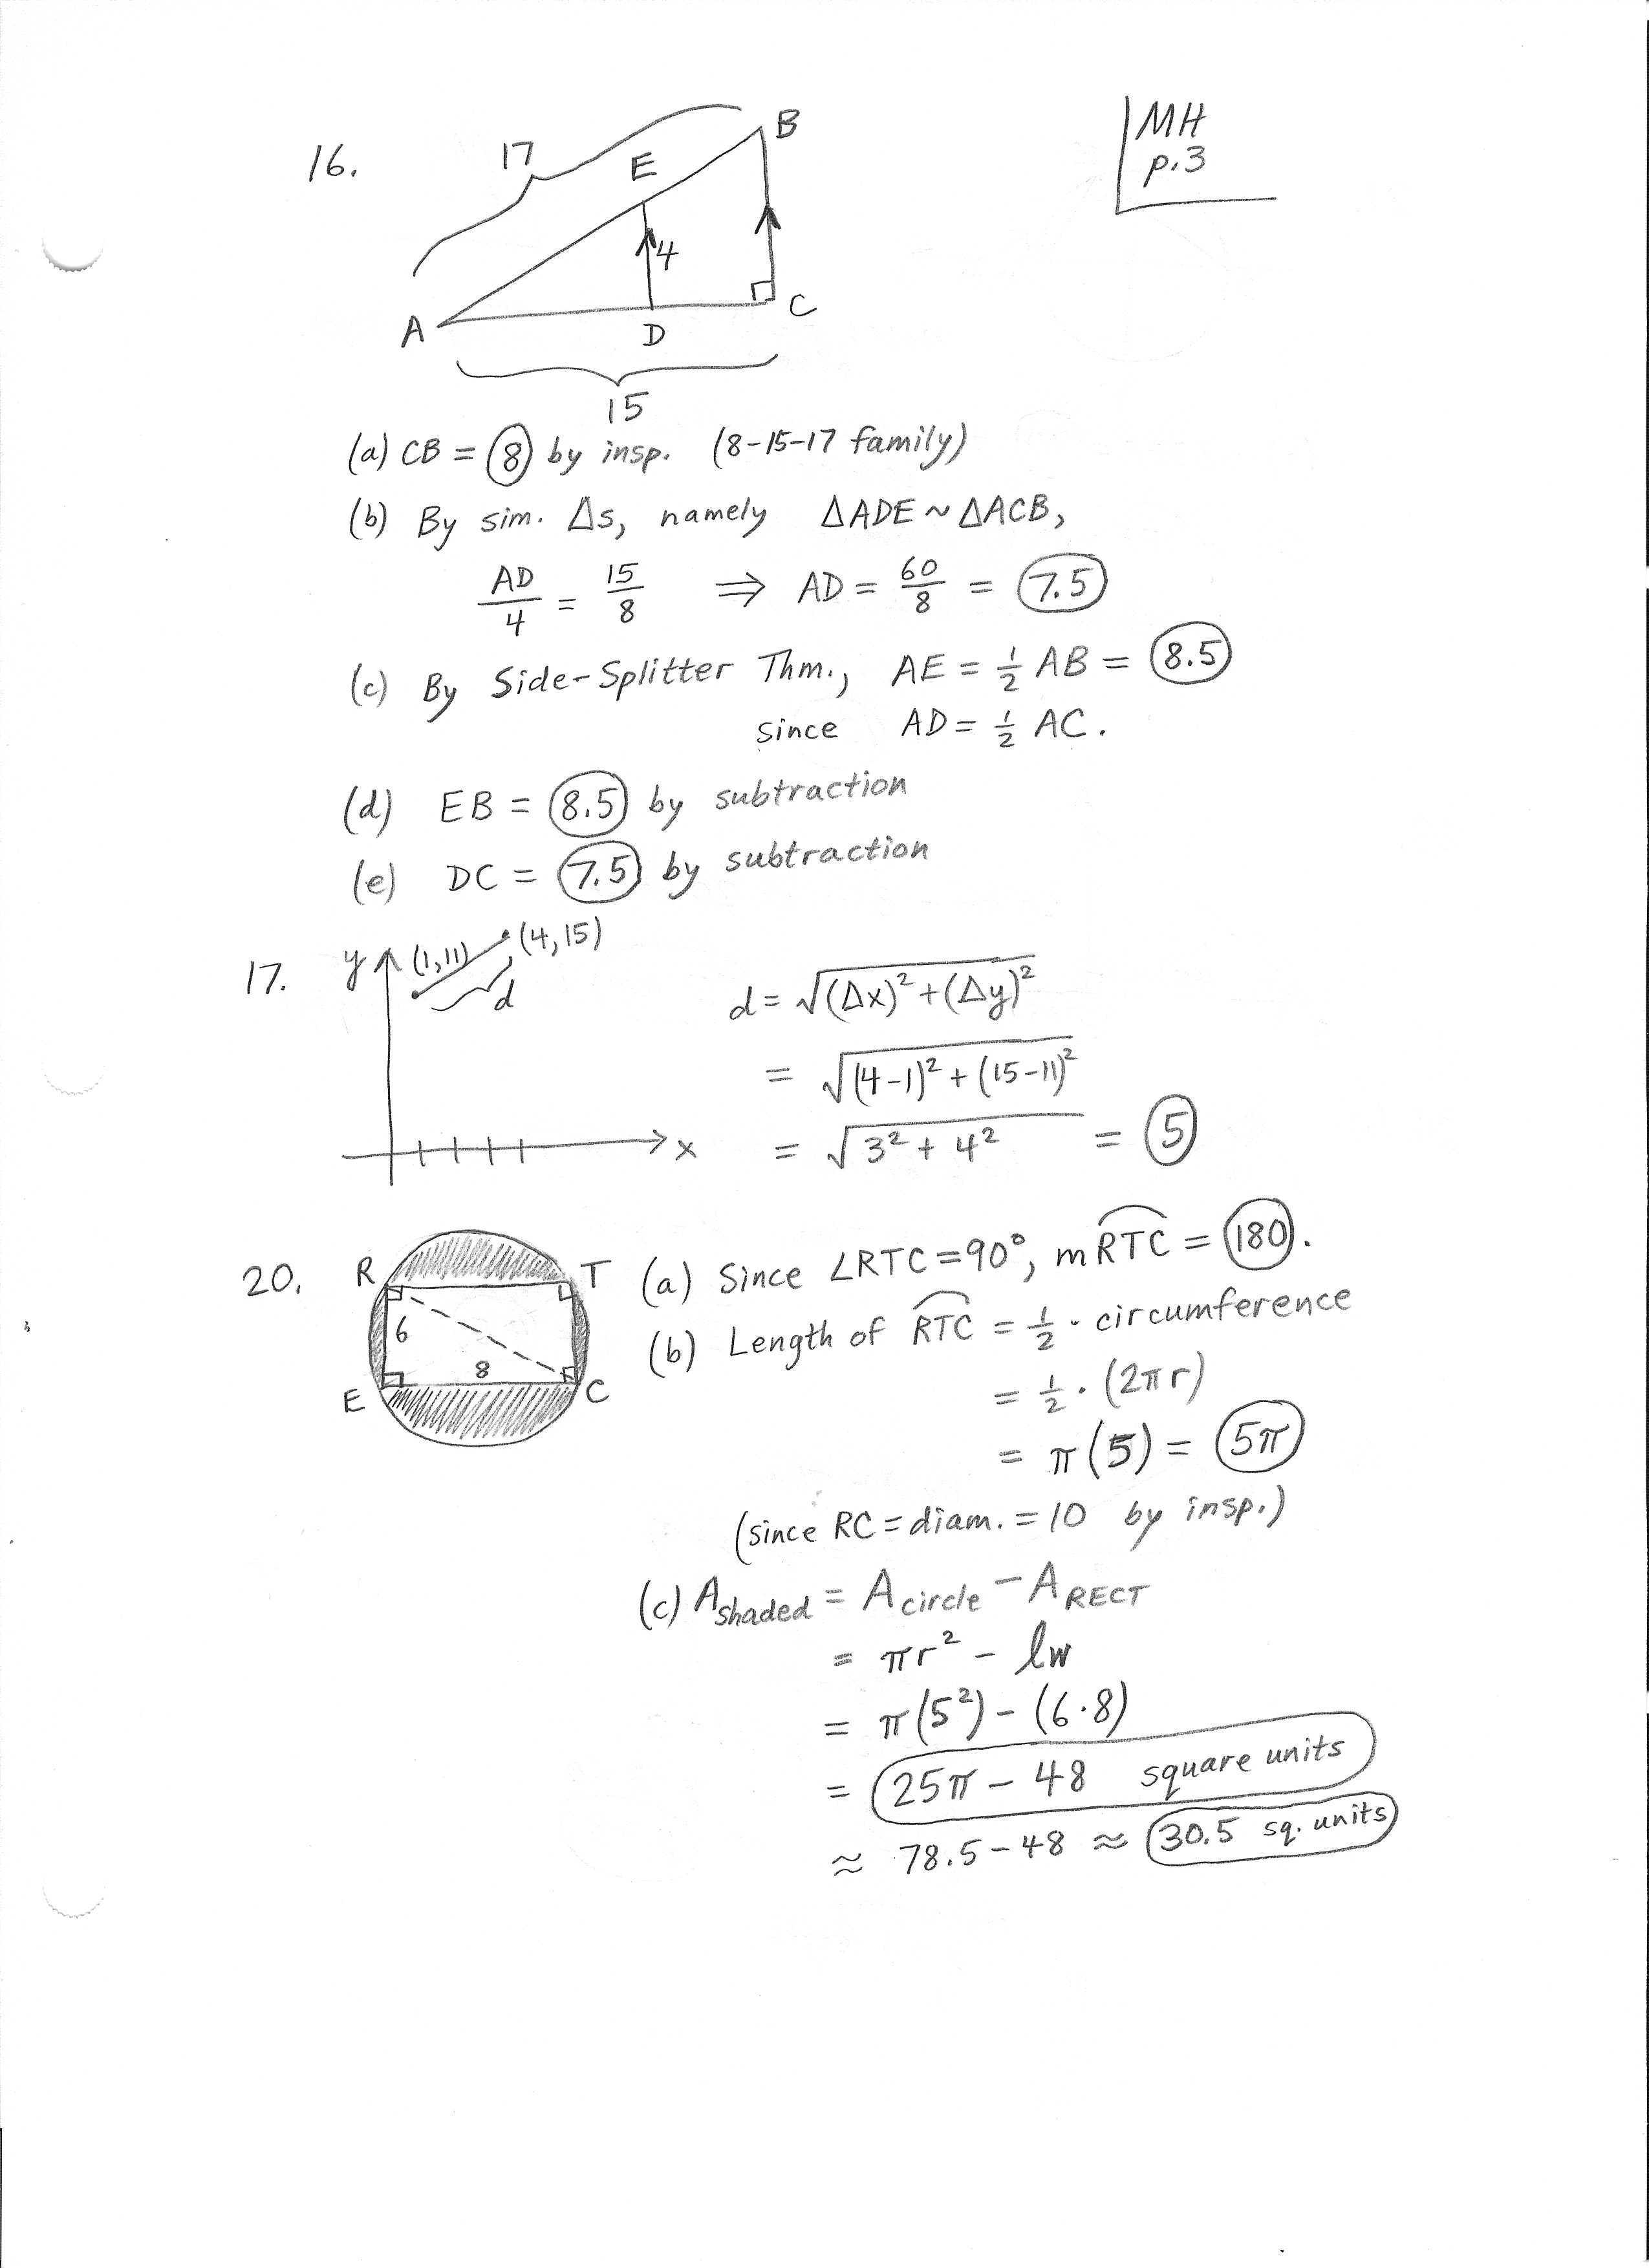 MH
p.3
16.
17
B
E
4
A
D
C
15
(a) CB = 8 by insp. (8-15-17 family)
(b) By sim. Δs, namely ΔADE ~ ΔACB,
AD/4 = 15/8 ⇒ AD = 60/8 = 7.5
(c) By Side-Splitter Thm., AE = 1/2 AB = 8.5
since AD = 1/2 AC.
(d) EB = 8.5 by subtraction
(e) DC = 7.5 by subtraction
17.
y
(1,11)
(4,15)
d
x
d = √((Δx)² + (Δy)²)
= √((4-1)² + (15-11)²)
= √(3² + 4²) = 5
20.
R
T
6
8
E
C
(a) Since ∠RTC = 90°, m⌒RTC = 180.
(b) Length of ⌒RTC = 1/2 · circumference
= 1/2 · (2πr)
= π(5) = 5π
(since RC = diam. = 10 by insp.)
(c) A shaded = A circle − A RECT
= πr² − lw
= π(5²) − (6·8)
= 25π − 48 square units
≈ 78.5 − 48 ≈ 30.5 sq. units